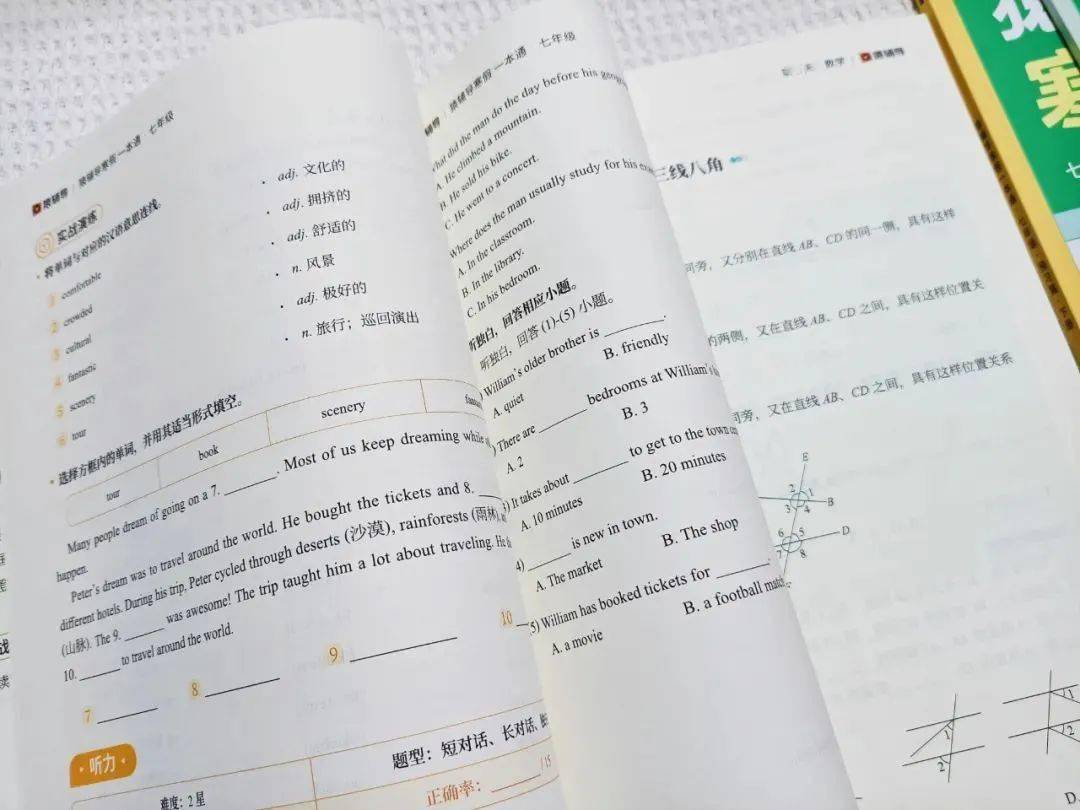 猿辅导 | 猿辅导寒假一本通 七年级
实战演练
将单词与对应的汉语意思连线。
1 comfortable
2 crowded
3 cultural
4 fantastic
5 scenery
6 tour
adj. 文化的
adj. 拥挤的
adj. 舒适的
n. 风景
adj. 极好的
n. 旅行；巡回演出
选择方框内的单词，并用其适当形式填空。
tour book scenery
Many people dream of going on a 7. ______. Most of us keep dreaming while
happen.
Peter's dream was to travel around the world. He bought the tickets and 8.
different hotels. During his trip, Peter cycled through deserts (沙漠), rainforests (雨林),
(山脉). The 9. ______ was awesome! The trip taught him a lot about traveling. He
10. ______ to travel around the world.
7 ______ 8 ______ 9 ______ 10
听力
题型：短对话、长对话、
难度：2 星
正确率：______ / 15
辅导 | 猿辅导寒假一本通 七年级
What did the man do the day before his
A. He climbed a mountain.
B. He sold his bike.
C. He went to a concert.
Where does the man usually study for his
A. In the classroom.
B. In the library.
C. In his bedroom.
听独白，回答相应小题。
听独白，回答 (1)-(5) 小题。
William's older brother is ______.
A. quiet B. friendly
There are ______ bedrooms at William's
A. 2 B. 3
It takes about ______ to get to the town
A. 10 minutes B. 20 minutes
4) ______ is new in town.
A. The market B. The shop
5) William has booked tickets for ______.
A. a movie B. a football match
天 数学 | 猿辅导
三线八角
同旁，又分别在直线 AB、CD 的同一侧，具有这样
的两侧，又在直线 AB、CD 之间，具有这样位置关
同旁，又在直线 AB、CD 之间，具有这样位置关系
E
2 1
3 4 B
6 5 D
7 8
1
2
1
2
D.
寒
七